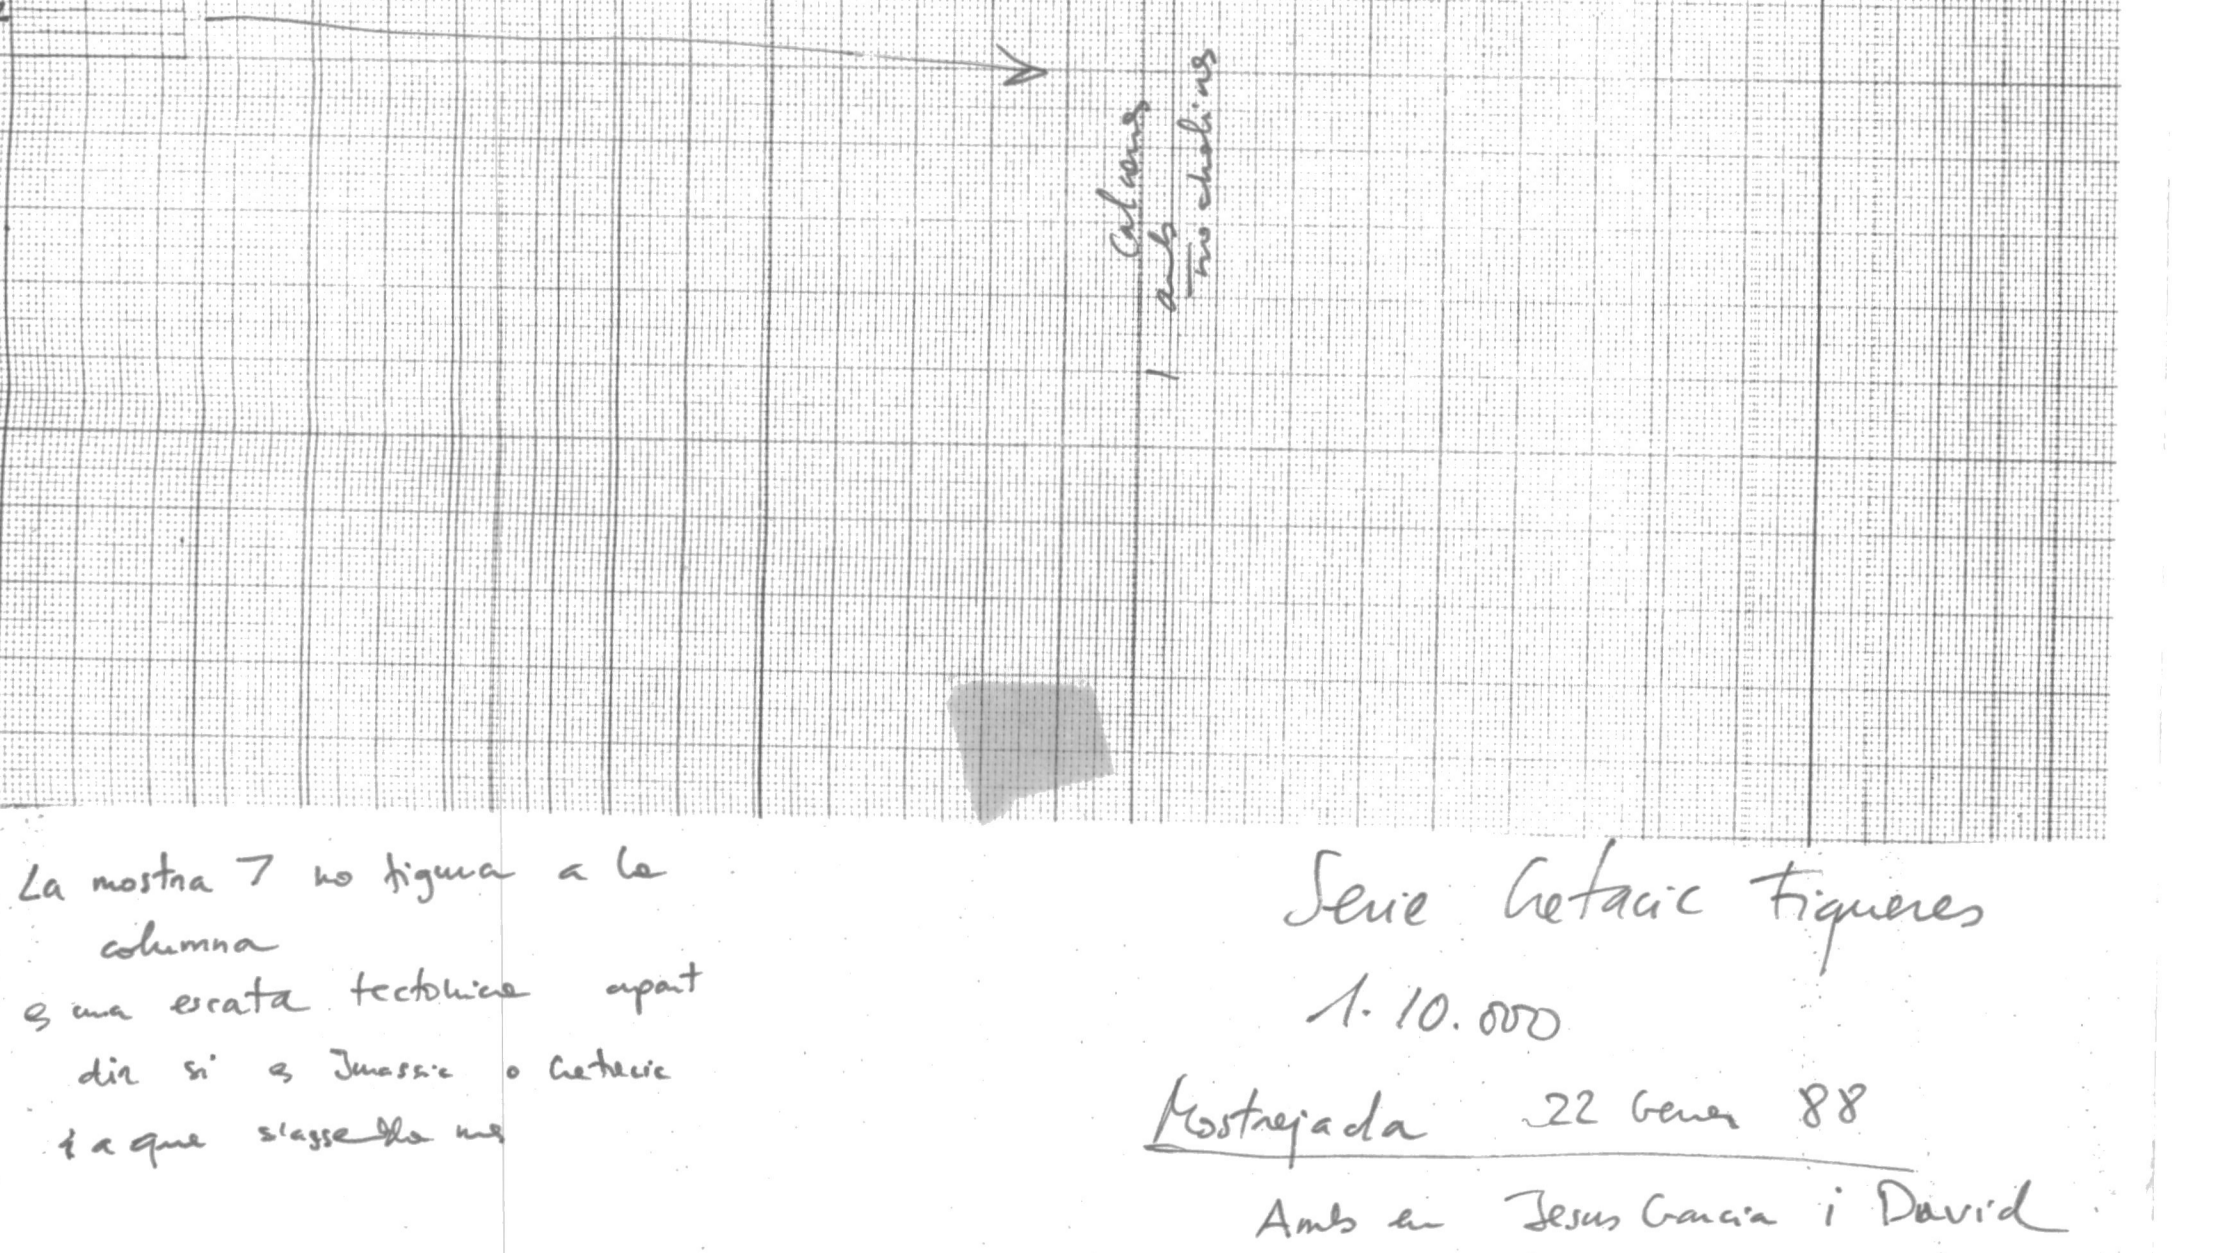 Calcaries
amb
trocholines
La mostra 7 no figura a la
columna
es una escata tectonica apart
dir si es Jurassic o Cretacic
i a que s'assembla mes
Serie Cretacic Figueres
1:10.000
Mostrejada 22 Gener 88
Amb en Jesus Garcia i David